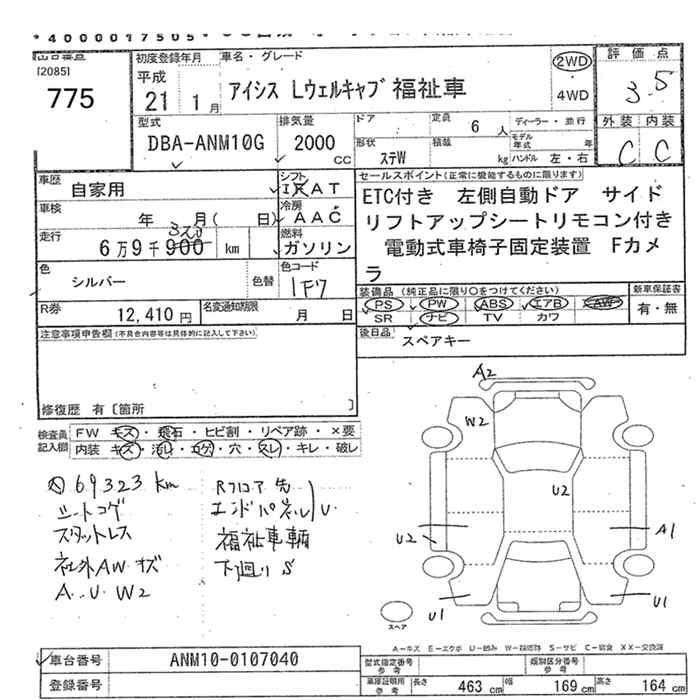 *4000017505*
[2085]
775
初度登録年月
車名・グレード
平成
21年1月
アイシス Lウェルキャブ 福祉車
2WD
4WD
評価点
3.5
型式
DBA-ANM10G
排気量
2000
cc
ドア
定員
6人
ディーラー・並行
形状
ステW
積載
kg
モデル年式
年
ハンドル 左・右
外装 内装
C C
車歴
自家用
シフト
AT
車検
年 月( 日)
冷房
AAC
走行
6万9千900 km
323
燃料
ガソリン
色
シルバー
色替
色コード
1F7
R券
12,410円
名変通知期限
月 日
セールスポイント(正常に機能するものに限ります)
ETC付き 左側自動ドア サイド
リフトアップシートリモコン付き
電動式車椅子固定装置 Fカメ
ラ
装備品(純正品に限り○をつけてください)
PS PW ABS エアB AW
SR ナビ TV カワ
新車保証書
有・無
後日品
スペアキー
注意事項申告欄(不具合内容等は具体的に記入して下さい)
修復歴 有〔箇所 〕
検査員記入欄
FW キズ・飛石・ヒビ割・リペア跡・×要
内装 キズ・汚れ・コゲ・穴・スレ・キレ・破レ
69323 km
シートコゲ
スタットレス
社外AWキズ
A.U W2
Rフロア先
エンドパネル U.
福祉車輌
下廻りS
A2
W2
U2
U2
A1
U1
U1
スペア
A-キズ E-エクボ U-凹み W-補修跡 S-サビ C-腐食 XX-交換済
車台番号
ANM10-0107040
登録番号
型式指定番号
参考
類別区分番号
参考
車庫証明用
参考
長さ 463 cm 幅 169 cm 高さ 164 cm